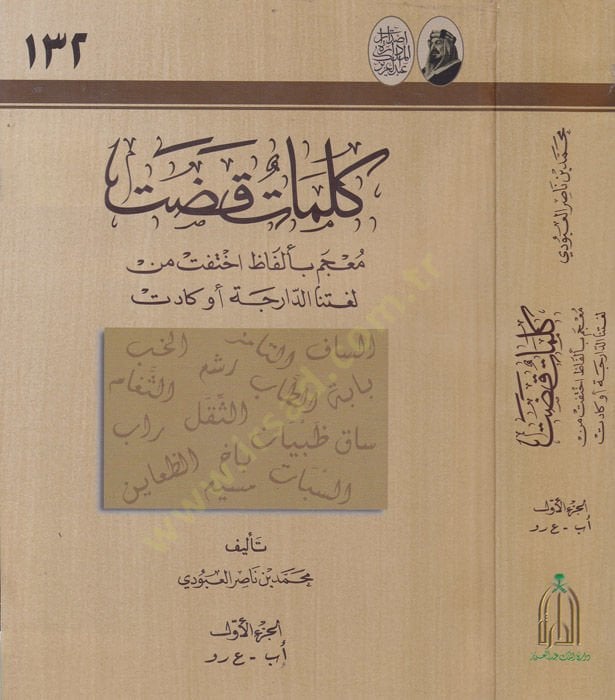 ١٣٢
إصدارات
الدارة
كلمات قضت
مُعْجَم بألفاظ اختفت من
لغتنا الدّارجة أو كادت
الساف
الخب
رشم
بابة
الثّغام
الثّقَل
راب
ساق
ظَبْيَات
باخ
الظعاين
السّبَات
مسيّر
تأليف
محمّد بن ناصر العبّودي
الجزء الأوّل
أ ب - ع ر و
محمّد بن ناصر العبّودي
كلمات قضت
مُعْجَم بألفاظ اختفت من
لغتنا الدّارجة أو كادت
الجزء الأوّل
أ ب - ع ر و
الدارة
دارة الملك عبدالعزيز
www.icsad.com.tr